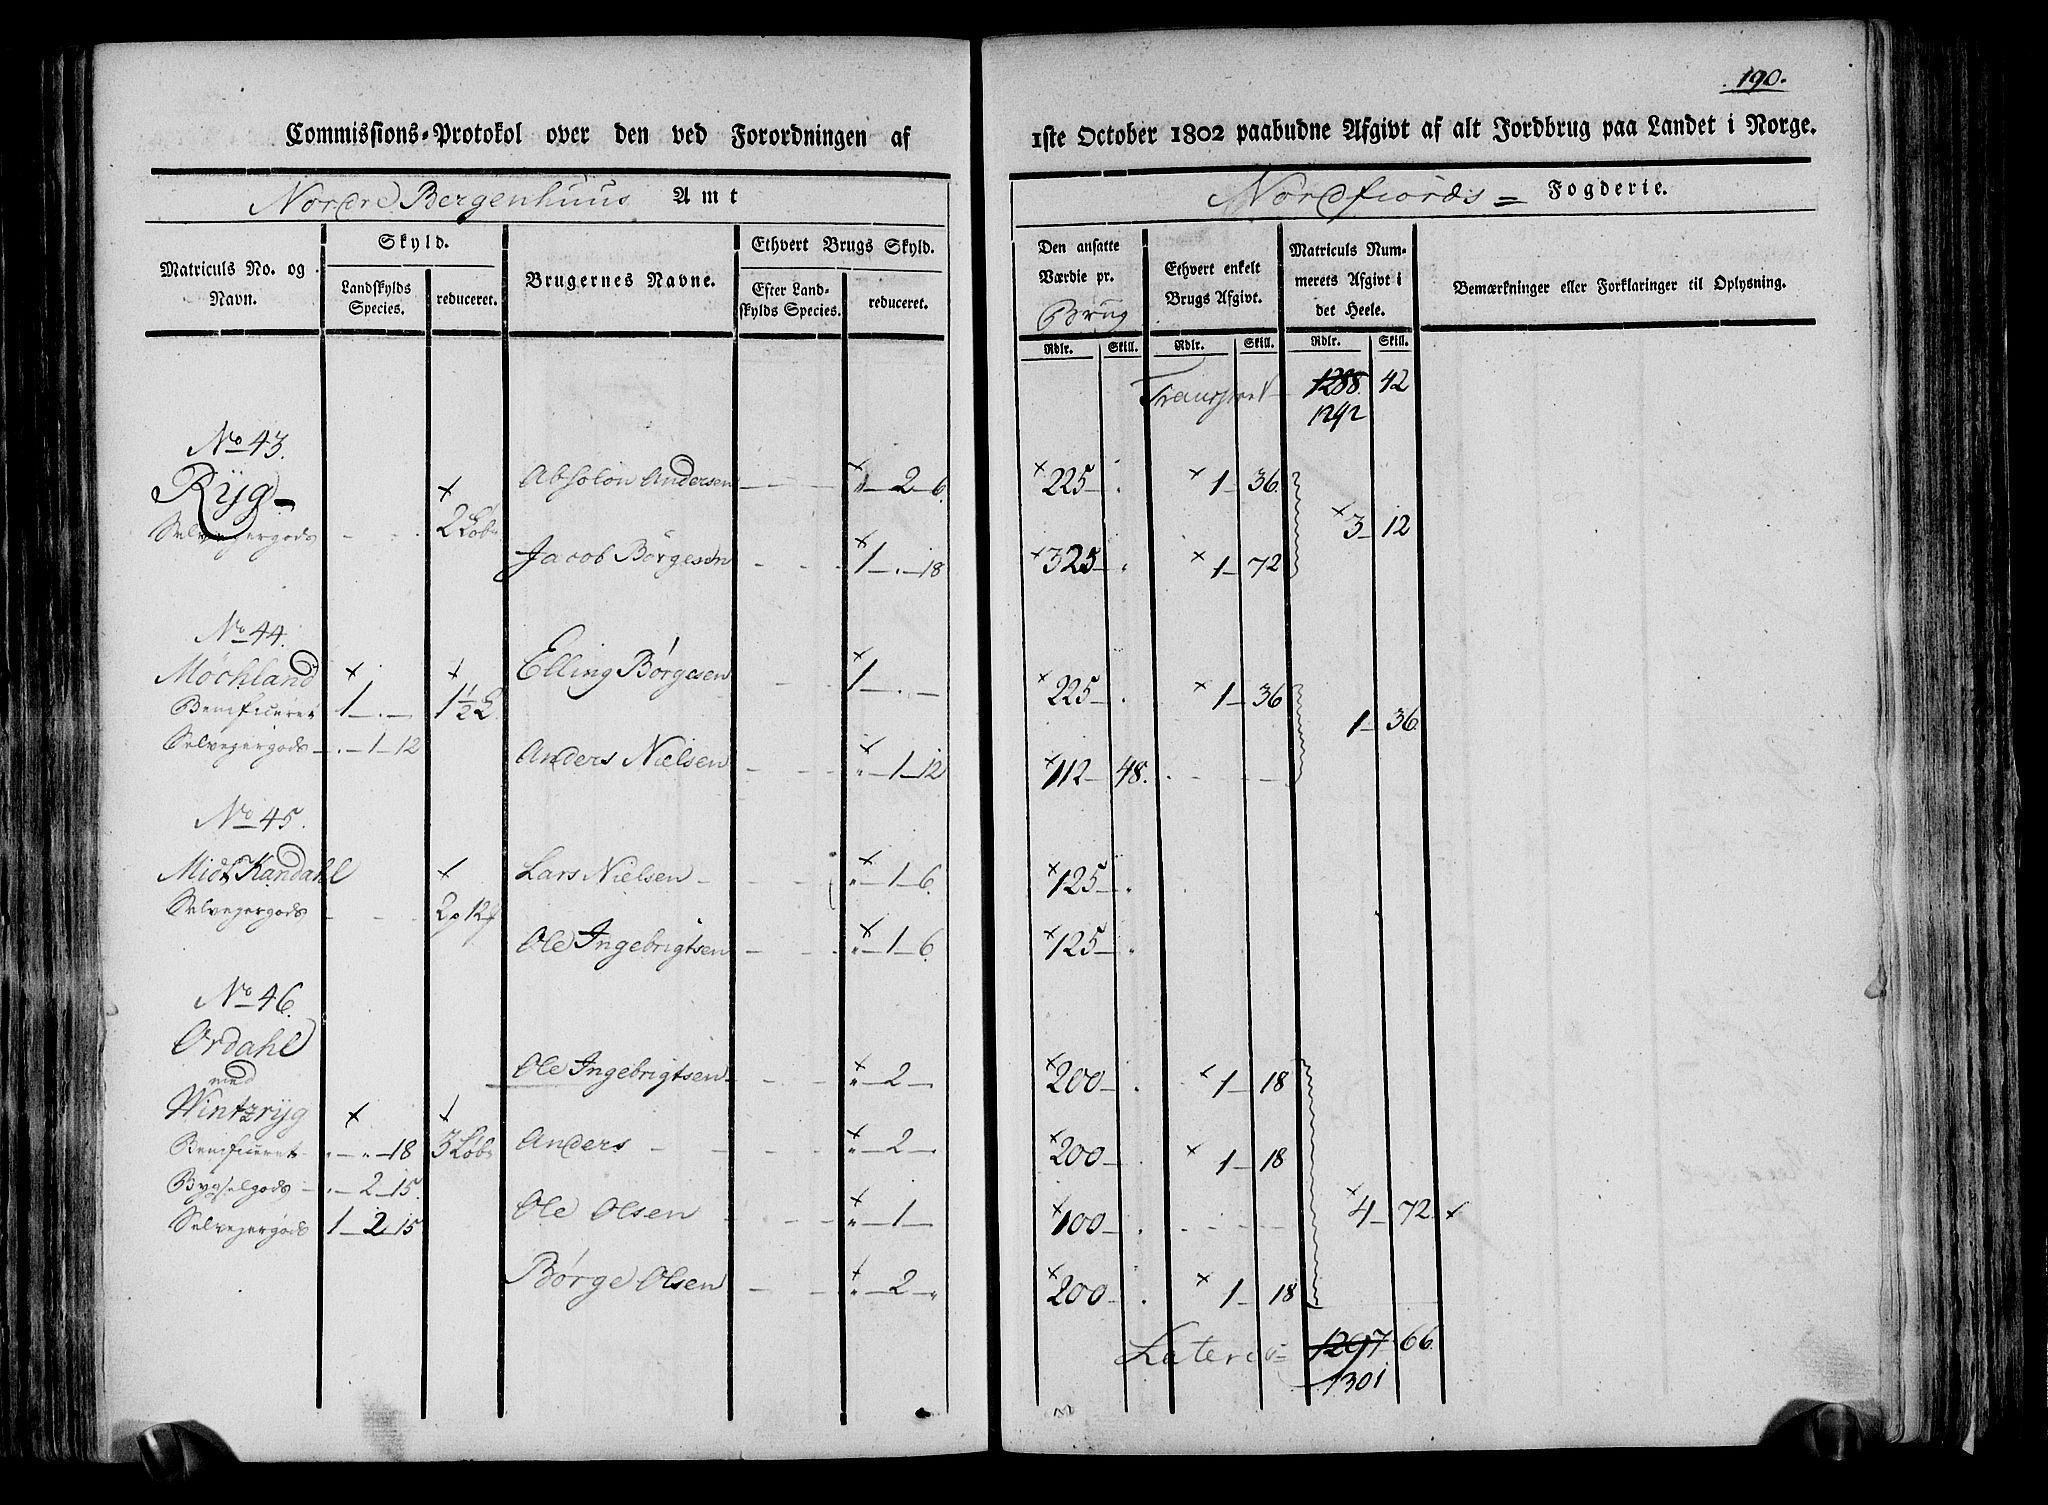 190.
Commissions-Protokol over den ved Forordningen af 1ste October 1802 paabudne Afgivt af alt Jordbrug paa Landet i Norge.
Nordre Bergenhuus Amt
Nordfiords = Fogderie.
Matriculs No. og Navn.
Skyld.
Landskylds Species.
reduceret.
Brugernes Navne.
Ethvert Brugs Skyld.
Efter Landskylds Species.
reduceret.
Den ansatte Værdie pr. Brug
Ethvert enkelt Brugs Afgivt.
Matriculs Nummerets Afgivt i det Heele.
Bemærkninger eller Forklaringer til Oplysning.
Rdlr. Skill. Rdlr. Skill. Rdlr. Skill.
Transport 1288. 42
1292
No 43.
Ryg
Absolon Andersen 2 6. 225 1 36.
Selvejergods 2 Løb 3 12
Jacob Børgesen 1 18 325 1 72
No 44.
Mochland
Elling Børgesen 1 225 1 36
Benificeret 1 1½ L 1 36
Selvejergods 1 12
Anders Nielsen 1 12 112 48.
No 45.
Midt Kandahl
Lars Nielsen 1 6. 125
Selvejergods 2p 12
Ole Ingebrigtsen 1 6. 125
No 46.
Ordahl
med
Ole Ingebrigtsen 2 200 1 18
Wintzryg
Benificeret 18 3 Løb Anders 2 200 1 18
Bygselgods 2 15.
Ole Olsen 1 100 4 72
Selvejergods 1 2 15
Børge Olsen 2 200 1 18
Lateris 1297 66
1301